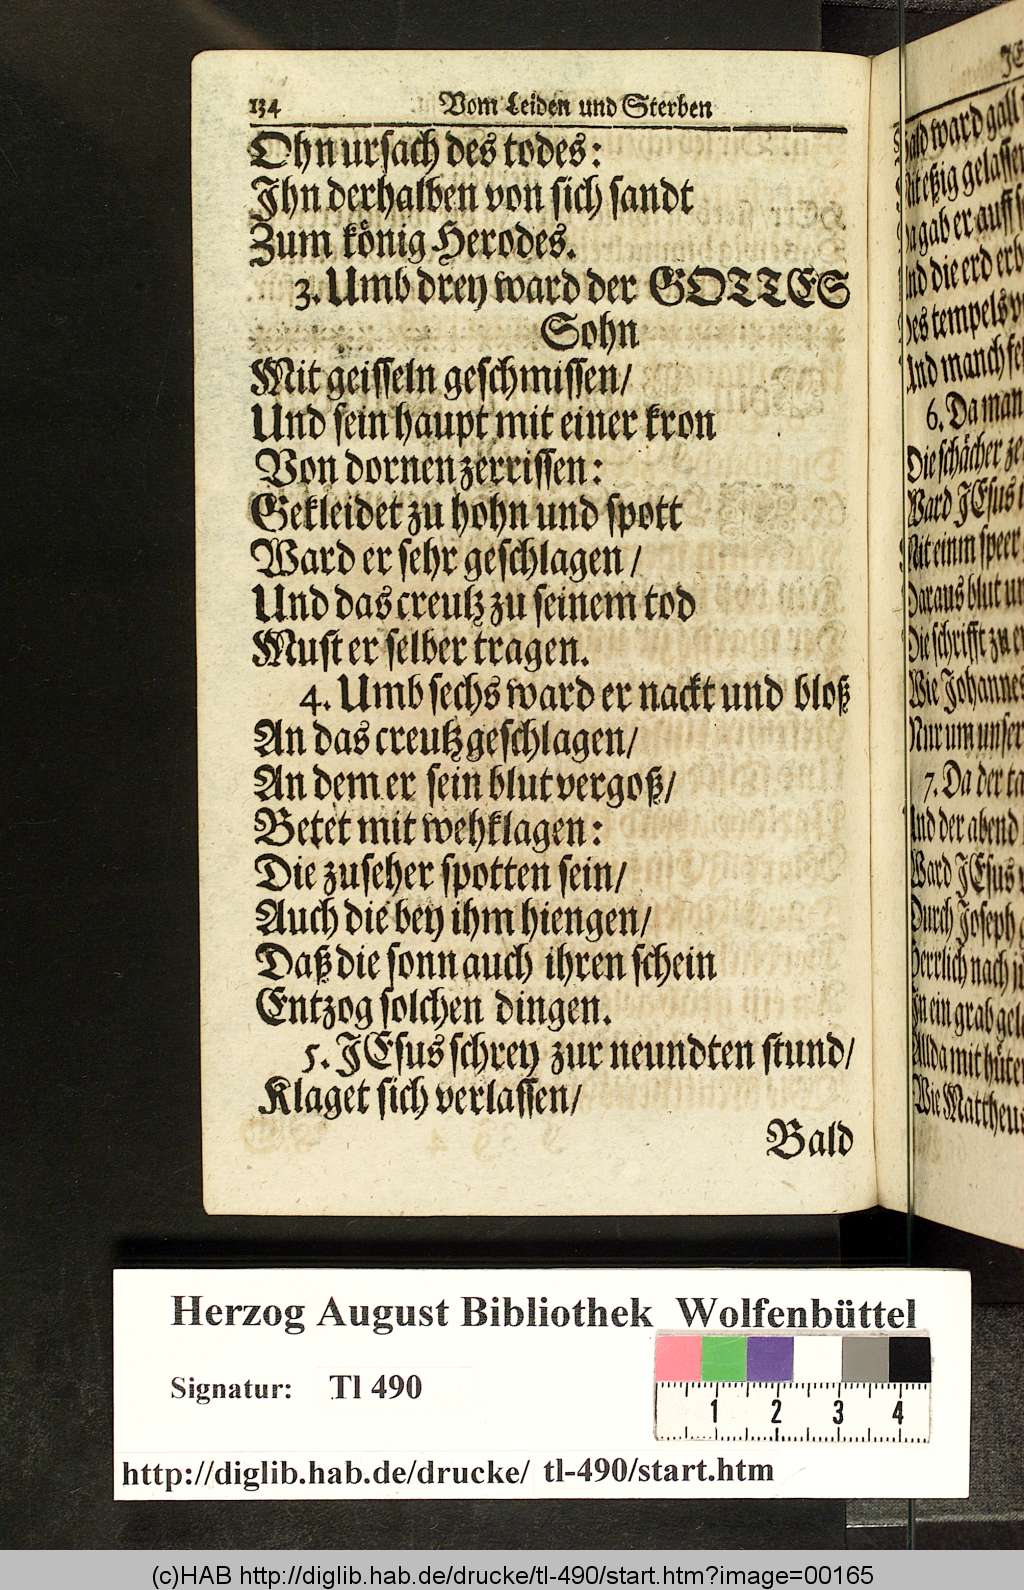 134 Vom Leiden und Sterben
Ohn ursach des todes:
Ihn derhalben von sich sandt
Zum könig Herodes.
3. Umb drey ward der GOTTES
Sohn
Mit geisseln geschmissen/
Und sein haupt mit einer kron
Von dornen zerrissen:
Gekleidet zu hohn und spott
Ward er sehr geschlagen/
Und das creutz zu seinem tod
Must er selber tragen.
4. Umb sechs ward er nackt und bloß
An das creutz geschlagen/
An dem er sein blut vergoß/
Betet mit wehklagen:
Die zuseher spotten sein/
Auch die bey ihm hiengen/
Daß die sonn auch ihren schein
Entzog solchen dingen.
5. JEsus schrey zur neundten stund/
Klaget sich verlassen/
Bald
JE
Bald ward gall
Mit eßig gelassen
Da gab er auff
Und die erd erb
Des tempels
Und manch
6. Da man
Die schächer
Ward JEsus
Mit einm speer
Daraus blut
Die schrifft zu
Wie Johannes
Nur um unser
7. Da der
Und der abend
Ward JEsus
Durch Joseph
Herrlich nach
In ein grab
Allda mit
Wie Mattheus
Herzog August Bibliothek Wolfenbüttel
Signatur: Tl 490
1 2 3 4
http://diglib.hab.de/drucke/ tl-490/start.htm
(c)HAB http://diglib.hab.de/drucke/tl-490/start.htm?image=00165